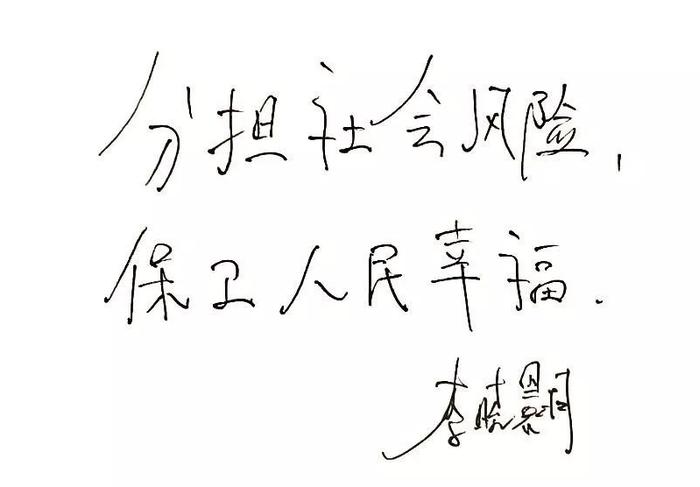 分担社会风险,
保卫人民幸福.
李晓